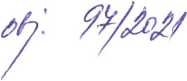 obj. 97/2021